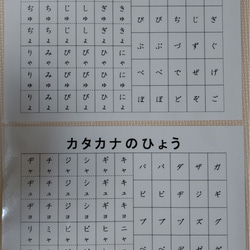 ぢゅ ちゅ じゅ しゅ ぎゅ きゅ
ぢょ ちょ じょ しょ ぎょ きょ
りゃ みゃ ぴゃ びゃ ひゃ にゃ
りゅ みゅ ぴゅ びゅ ひゅ にゅ
りょ みょ ぴょ びょ ひょ にょ
ぴ び ぢ じ ぎ
ぷ ぶ づ ず ぐ
ぺ べ で ぜ げ
ぽ ぼ ど ぞ ご
カタカナのひょう
ヂャ チャ ジャ シャ ギャ キャ
ヂュ チュ ジュ シュ ギュ キュ
ヂョ チョ ジョ ショ ギョ キョ
リャ ミャ ピャ ビャ ヒャ ニャ
パ バ ダ ザ ガ
ピ ビ ヂ ジ ギ
プ ブ ヅ ズ グ